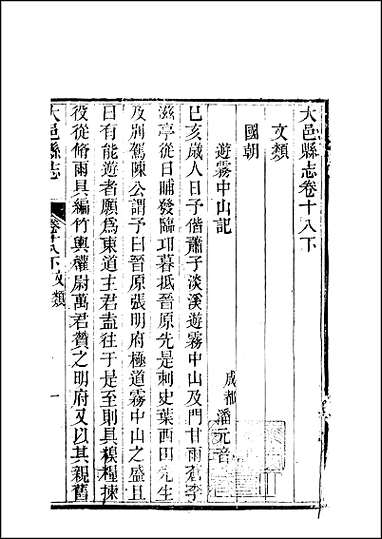 大邑縣志卷十八下
文類
國朝
遊霧中山記
成都潘元音
己亥歲人日予偕蕭子淡溪遊霧中山及門甘雨蒼李
滋亭從日晡發臨邛暮抵晉原先是刺史葉西田先生
及別駕陳公謂予曰晉原張明府極道霧中山之盛且
曰有能遊者願為東道主君盍往于是至則具糗糧揀
役從脩雨具編竹輿權尉萬君贊之明府又以其親舊
大邑縣志
卷十八下文類
一